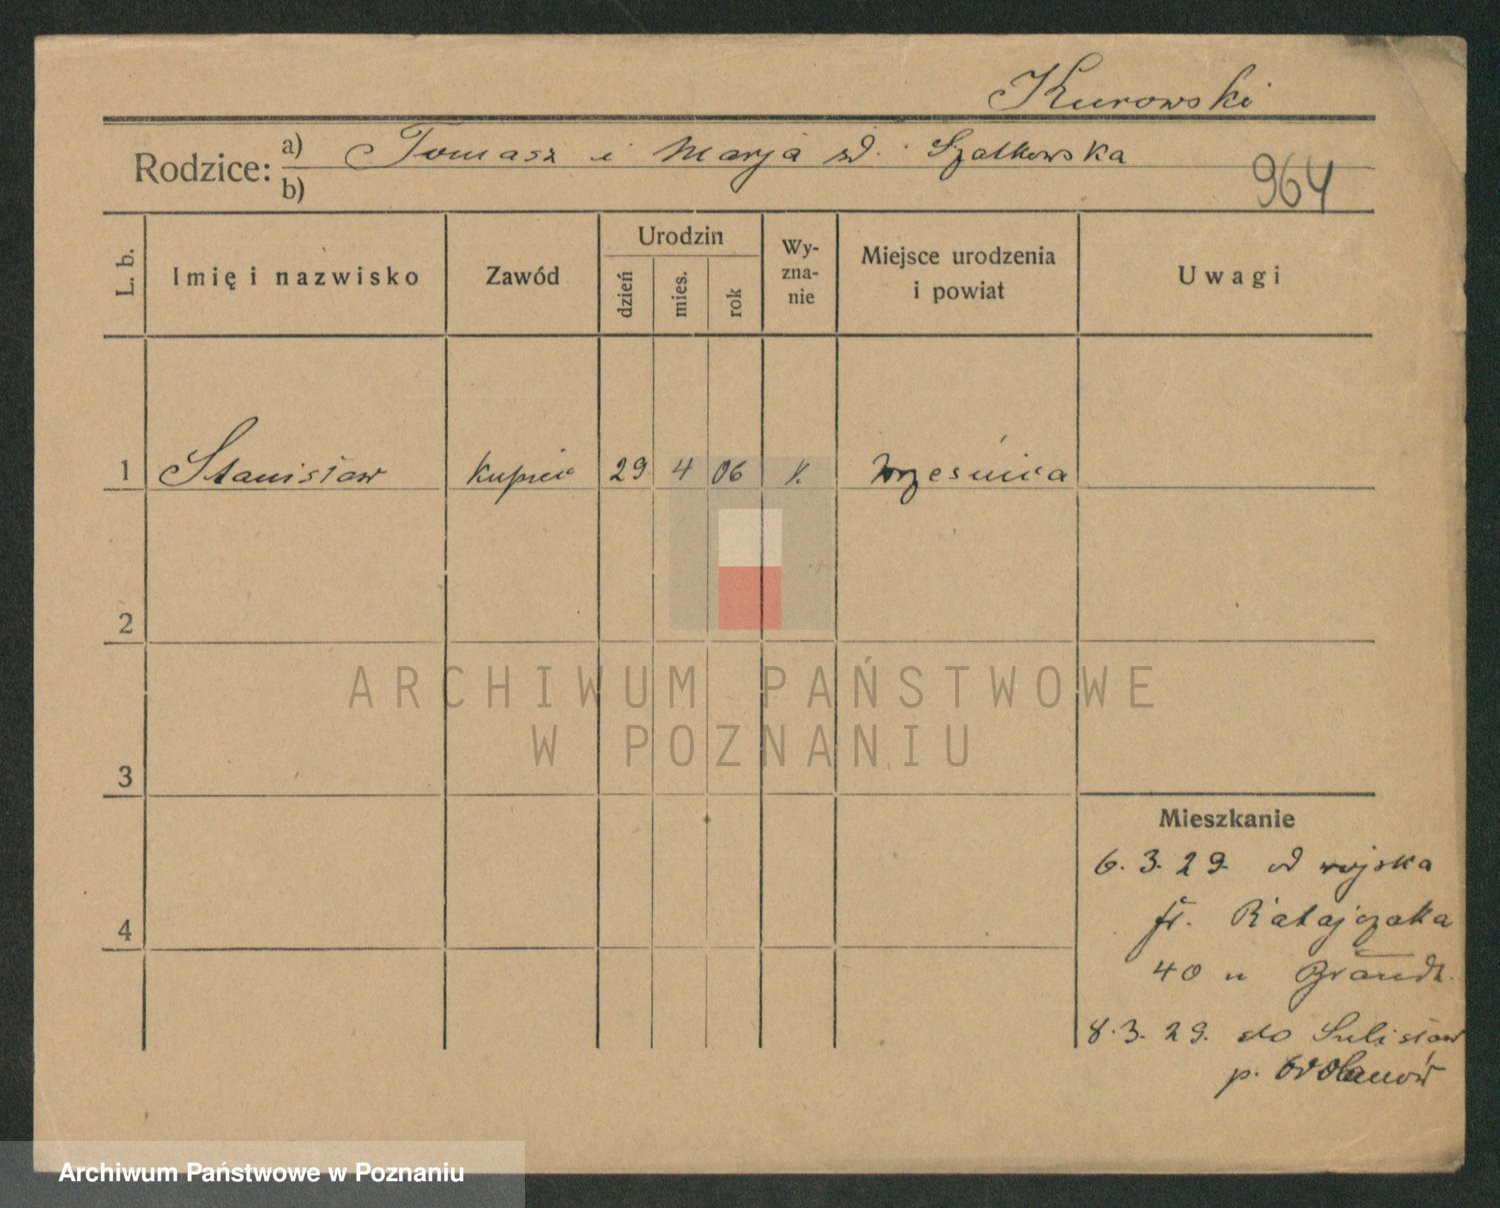 Kurowski
Rodzice: a) Tomasz i Marja zd. Szatkowska
b)
964
L. b. Imię i nazwisko Zawód Urodzin dzień mies. rok Wy-zna-nie Miejsce urodzenia i powiat Uwagi
1 Stanisław kupiec 29 4 06 k. Wrześnica
2
3
4
Mieszkanie
6.3.29. od wojska
fr. Ratajczaka
40 u Brandt.
8.3.29. do Sulisław
p.
ARCHIWUM PAŃSTWOWE
W POZNANIU
Archiwum Państwowe w Poznaniu